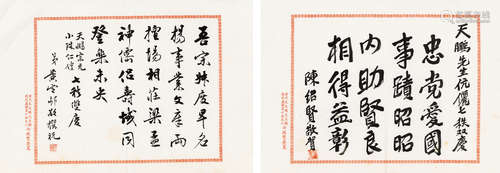 吾宗妙度早名
揚事業文章兩
擅場相莊梁孟
神儒侶壽域同
登樂未央
天鵬宗兄
小 仁嫂 七秩雙慶
弟黃 敬撰祝
天鵬先生伉儷七秩双慶
忠党愛國
事蹟昭昭
内助賢良
相得益彰
陳紹賢敬賀